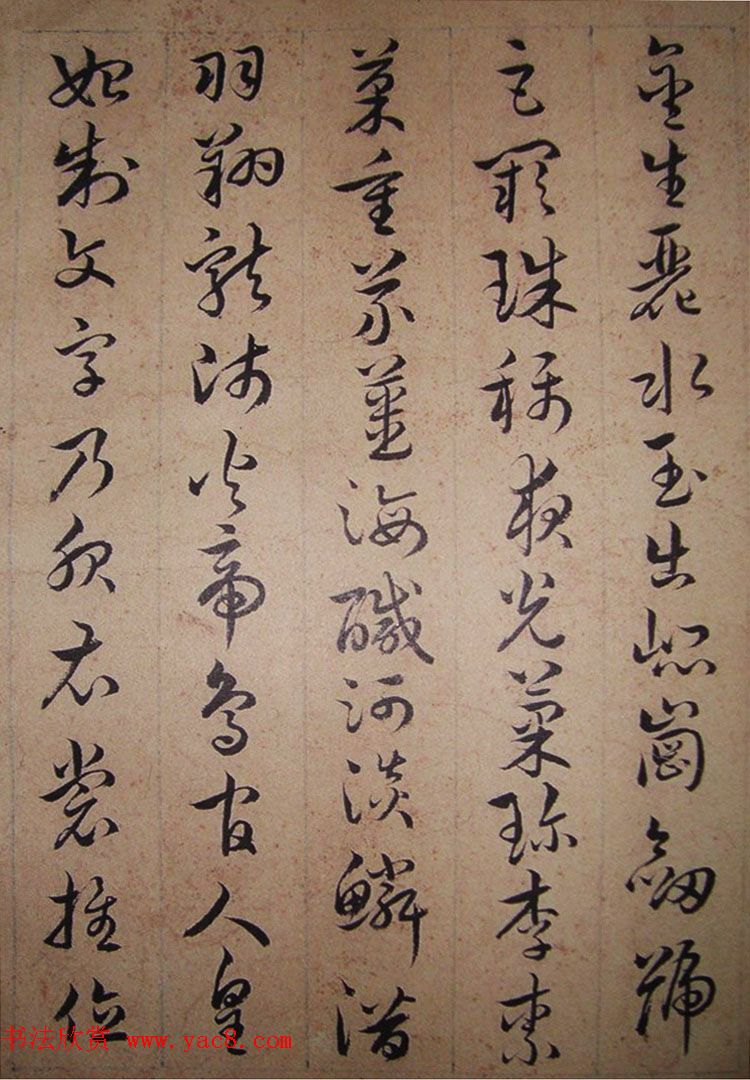 金生麗水玉出崐崗劍號
巨闕珠稱夜光菓珍李柰
菜重芥薑海醎河淡鱗潛
羽翔龍師火帝鳥官人皇
始制文字乃服衣裳推位
书法欣赏 www.yac8.com